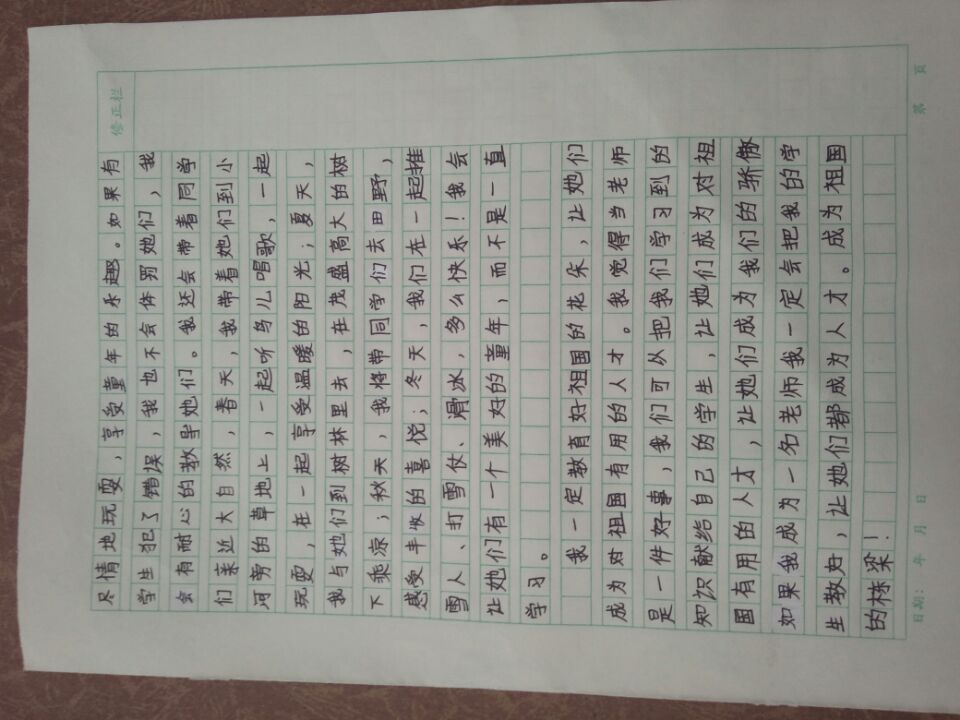 修正栏
尽情地玩耍，享受童年的乐趣。如果有
学生犯了错误，我也不会体罚她们，我
会有耐心的教导她们。我还会带着同学
们亲近大自然，春天，我带着她们到小
河旁的草地上，一起听鸟儿唱歌，一起
玩耍，在一起享受温暖的阳光；夏天，
我与她们到树林里去，在茂盛高大的树
下乘凉；秋天，我将带同学们去田野，
感受丰收的喜悦；冬天，我们在一起推
雪人、打雪仗、滑冰，多么快乐！我会
让她们有一个美好的童年，而不是一直
学习。
我一定教育好祖国的花朵，让她们
成为对祖国有用的人才。我觉得当老师
是一件好事，我们可以把我们学习到的
知识献给自己的学生，让她们成为对祖
国有用的人才，让她们成为我们的骄傲
如果我成为一名老师我一定会把我的学
生教好，让她们都成为人才。成为祖国
的栋梁！
日期： 年 月 日 第 页